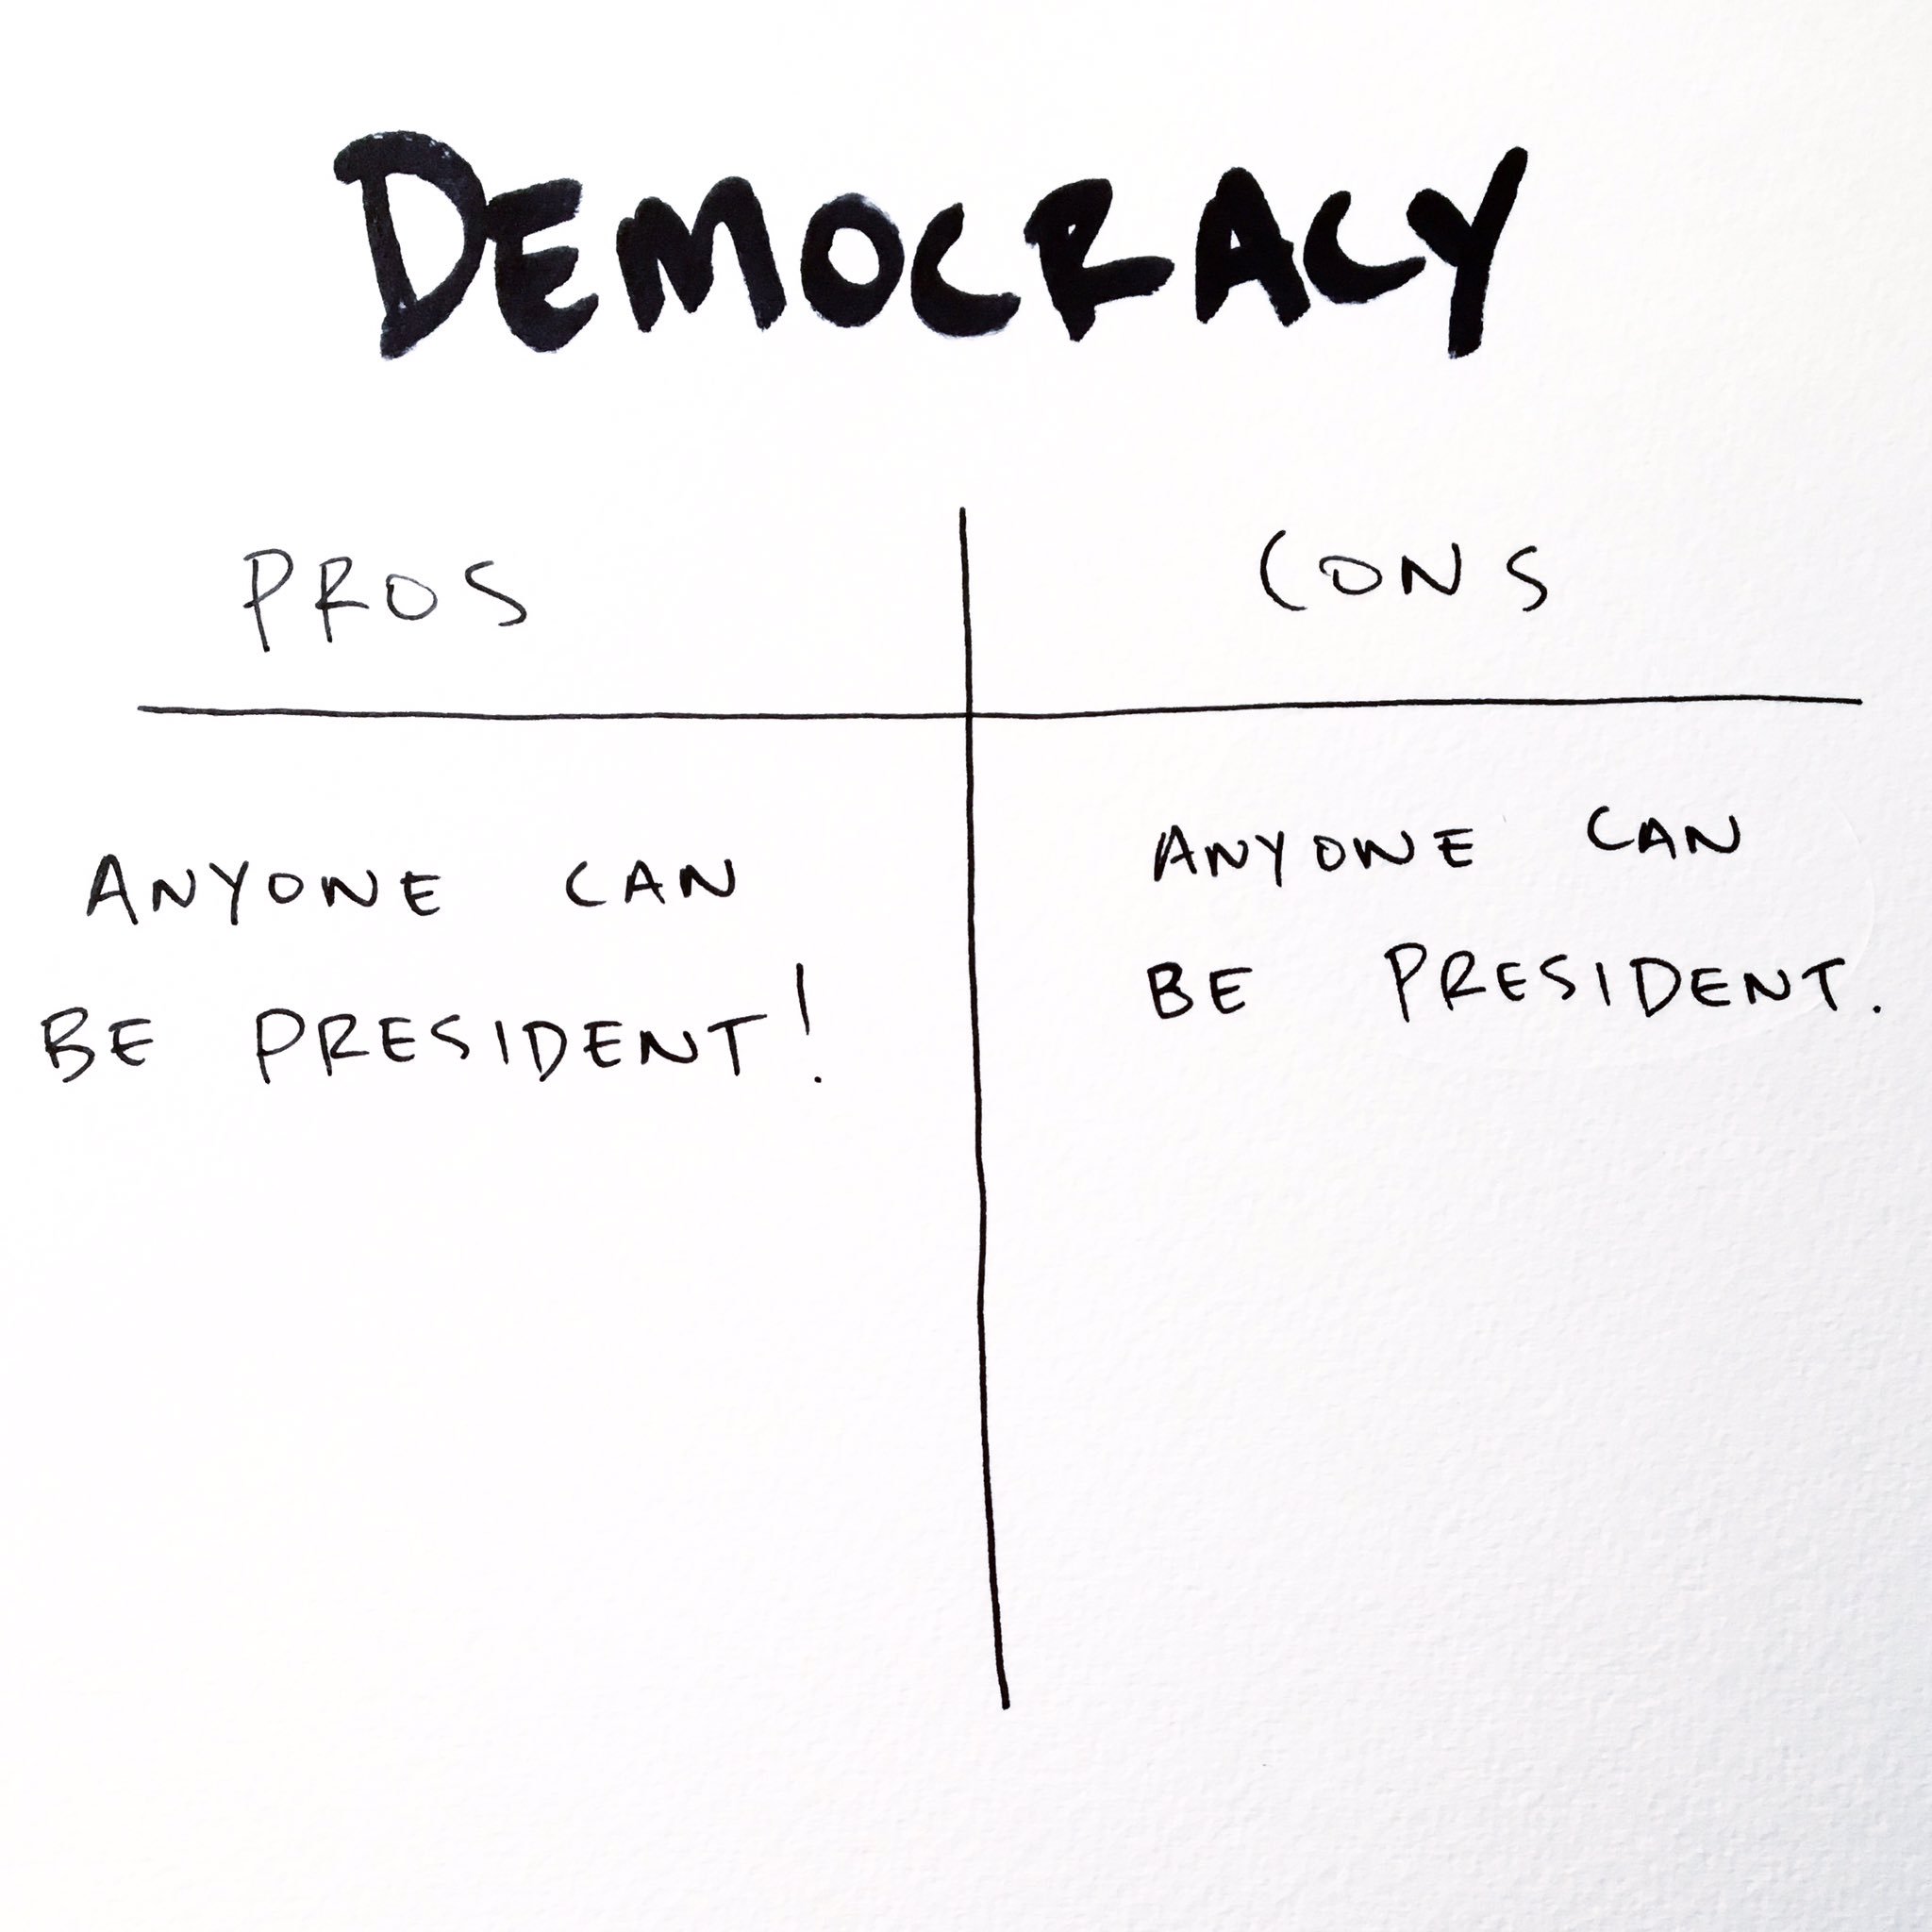 DEMOCRACY
PROS
CONS
ANYONE CAN
BE PRESIDENT!
ANYONE CAN
BE PRESIDENT.